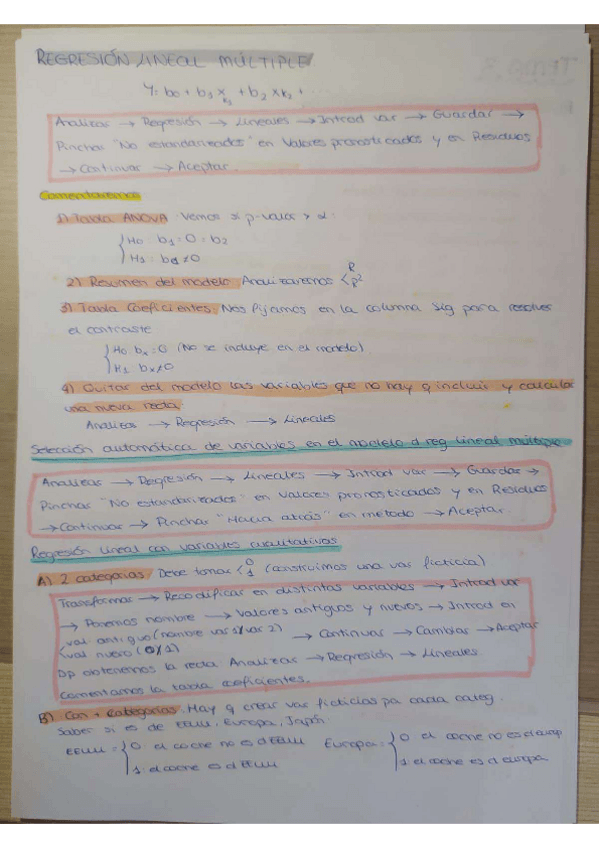 REGRESIÓN LINEAL MÚLTIPLE
Y = b0 + b1 x k1 + b2 x k2 + ...
Analizar → Regresión → Lineales → Introd var → Guardar →
Pinchar "No estandarizados" en valores pronosticados y en Residuos
→ Continuar → Aceptar.
Comentaremos
1) Tabla ANOVA. Vemos si p-valor > α.
H0: b1 = 0 = b2
H1: b1 ≠ 0
2) Resumen del modelo. Analizaremos < R
R²
3) Tabla Coeficientes: Nos fijamos en la columna Sig para resolver
el contraste
H0 bx = 0 (No se incluye en el modelo)
H1 bx ≠ 0
4) Quitar del modelo las variables que no hay q incluir y calcular
una nueva recta
Analizar → Regresión → Lineales
Selección automática de variables en el modelo d reg lineal múltiple
Analizar → Regresión → Lineales → Introd var → Guardar →
Pinchar "No estandarizados" en valores pronosticados y en Residuos
→ Continuar → Pinchar "Hacia atrás" en método → Aceptar.
Regresión lineal con variables cualitativas
A) 2 categorias. Debe tomar < 0 1 (construimos una var ficticia)
Transformar → Recodificar en distintas variables → Introd var
→ Ponemos nombre → Valores antiguos y nuevos → Introd en
< val antiguo (nombre var 1 y var 2) → Continuar → Cambiar → Aceptar
val nuevo (0 y 1)
Dp obtenemos la recta Analizar → Regresión → Lineales
Comentamos la tabla coeficientes.
B) Con + categorías. Hay q crear var ficticias pa cada categ.
Saber si es de EEUU, Europa, Japón.
EEUU = { 0: el coche no es d EEUU Europa = { 0: el coche no es d europ
1: el coche es d EEUU 1: el coche es d europa